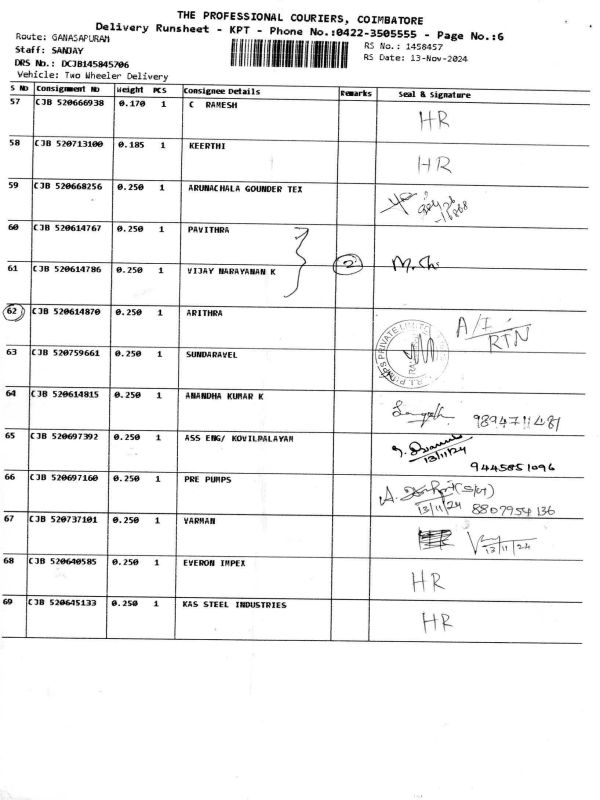 THE PROFESSIONAL COURIERS, COIMBATORE
Delivery Runsheet - KPT - Phone No.:0422-3505555 - Page No.:6
Route: GANASAPURAM
RS No.: 1458457
Staff: SANJAY
RS Date: 13-Nov-2024
DRS No.: DCJB145845706
Vehicle: Two Wheeler Delivery
S No Consignment No Weight PCS Consignee Details Remarks Seal & Signature
57 CJB 520666938 0.170 1 C RAMESH HR
58 CJB 520713100 0.185 1 KEERTHI HR
59 CJB 520668256 0.250 1 ARUNACHALA GOUNDER TEX
60 CJB 520614767 0.250 1 PAVITHRA
61 CJB 520614786 0.250 1 VIJAY NARAYANAN K 2
62 CJB 520614870 0.250 1 ARITHRA A/I RTN
63 CJB 520759661 0.250 1 SUNDARAVEL
64 CJB 520614815 0.250 1 ANANDHA KUMAR K 9894711481
65 CJB 520697392 0.250 1 ASS ENG/ KOVILPALAYAM 13/11/24 9445851096
66 CJB 520697160 0.250 1 PRE PUMPS 13/11/24 8807954136
67 CJB 520737101 0.250 1 VARMAN 13/11/24
68 CJB 520640585 0.250 1 EVERON IMPEX HR
69 CJB 520645133 0.250 1 KAS STEEL INDUSTRIES HR